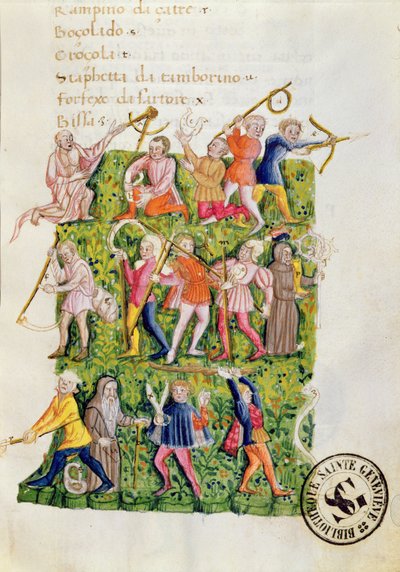 Rampino da çatre r
Boçolado s
Croçola t
Staphetta da tamborino u
forfexe da sartore x
Bissa s
BIBLIOTHÈQUE SAINTE GENEVIÈVE
SG